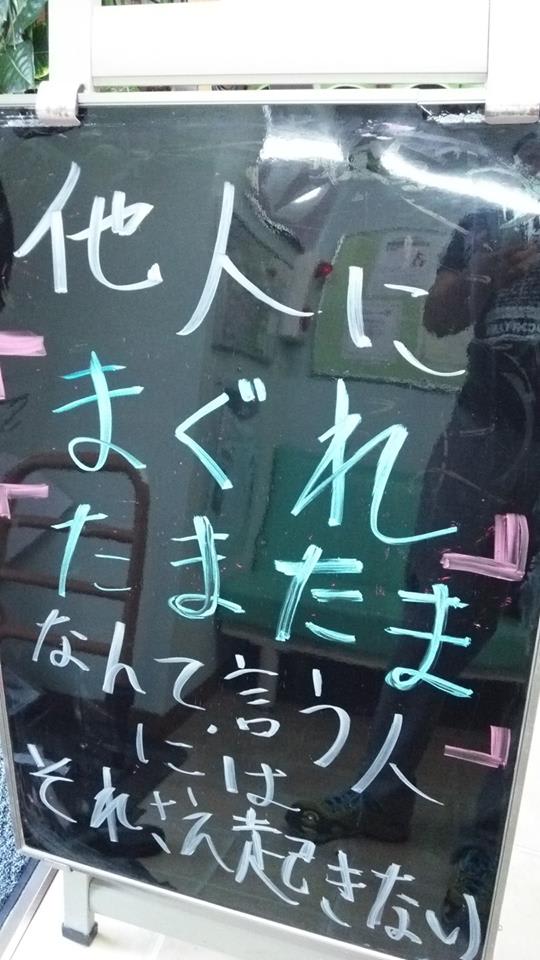 他人に
「まぐれ」
「たまたま」
なんて言う人
には
それさえ起きない